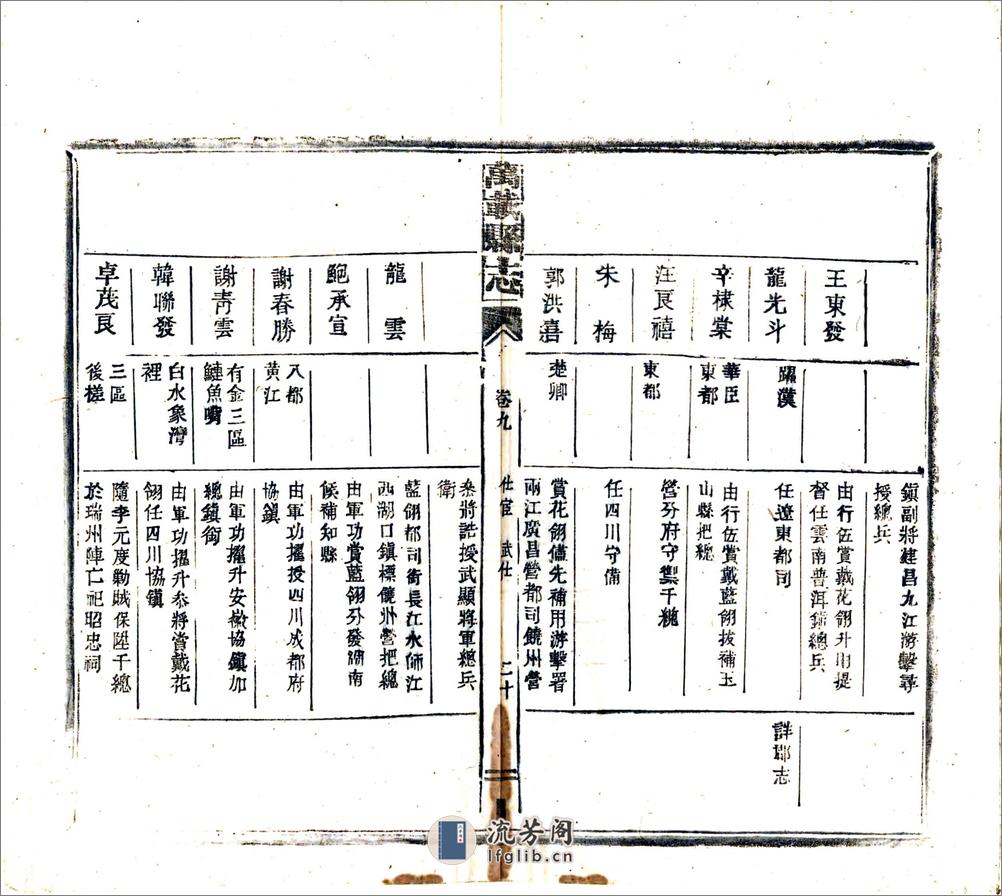 鎮副將建昌九江游擊尋
授總兵
王東發
由行伍賞戴花翎升用提
督任雲南普洱鎮總兵
龍光斗
躍漢
任遼東都司
詳郡志
辛棣棠
華臣
東都
由行伍賞戴藍翎拔補玉
山縣把總
汪良禧
東都
營分府守禦千總
朱梅
任四川守備
郭洪喜
楚卿
賞花翎儘先補用游擊署
兩江廣昌營都司饒州營
萬載縣志
卷九
仕宦 武仕
二十
參將誥授武顯將軍總兵
銜
龍雲
藍翎都司銜長江水師江
西湖口鎮標饒州營把總
鮑承宣
由軍功賞藍翎分發湖南
候補知縣
謝春勝
八都
黃江
由軍功擢授四川成都府
協鎮
謝青雲
有金三區
鰱魚嘴
由軍功擢升安徽協鎮加
總鎮銜
韓聯發
白水象灣
裡
由軍功擢升參將賞戴花
翎任四川協鎮
卓茂良
三區
後槎
隨李元度勦賊保陞千總
於瑞州陣亡祀昭忠祠
流芳阁
lfglib.cn